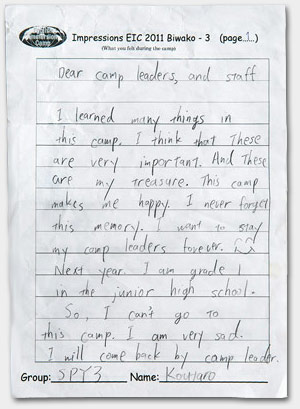 Impressions EIC 2011 Biwako - 3 (page 1..)
(What you felt during the camp)
Dear camp leaders, and staff
I learned many things in
this camp. I think that These
are very important. And These
are my treasure. This camp
makes me happy. I never forget
this memory. I want to stay
my camp leaders forever.
Next year. I am grade 1
in the junior high school.
So, I can't go to
this camp. I am very sad.
I will come back by camp leader.
Group: SPY3 Name: Koutaro